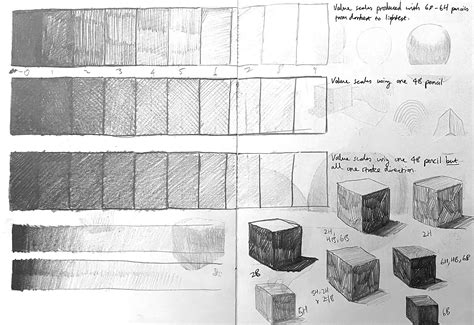 Value scales produced with 6B-6H pencils
from darkest to lightest.
0 1 2 3 4 5 6 7 8 9
Value scales using one 4B pencil
Value scales using one 4B pencil but
all one stroke direction.
2H,
4B, 6B
2H
2B
5H
6H, 4B, 6B
6B